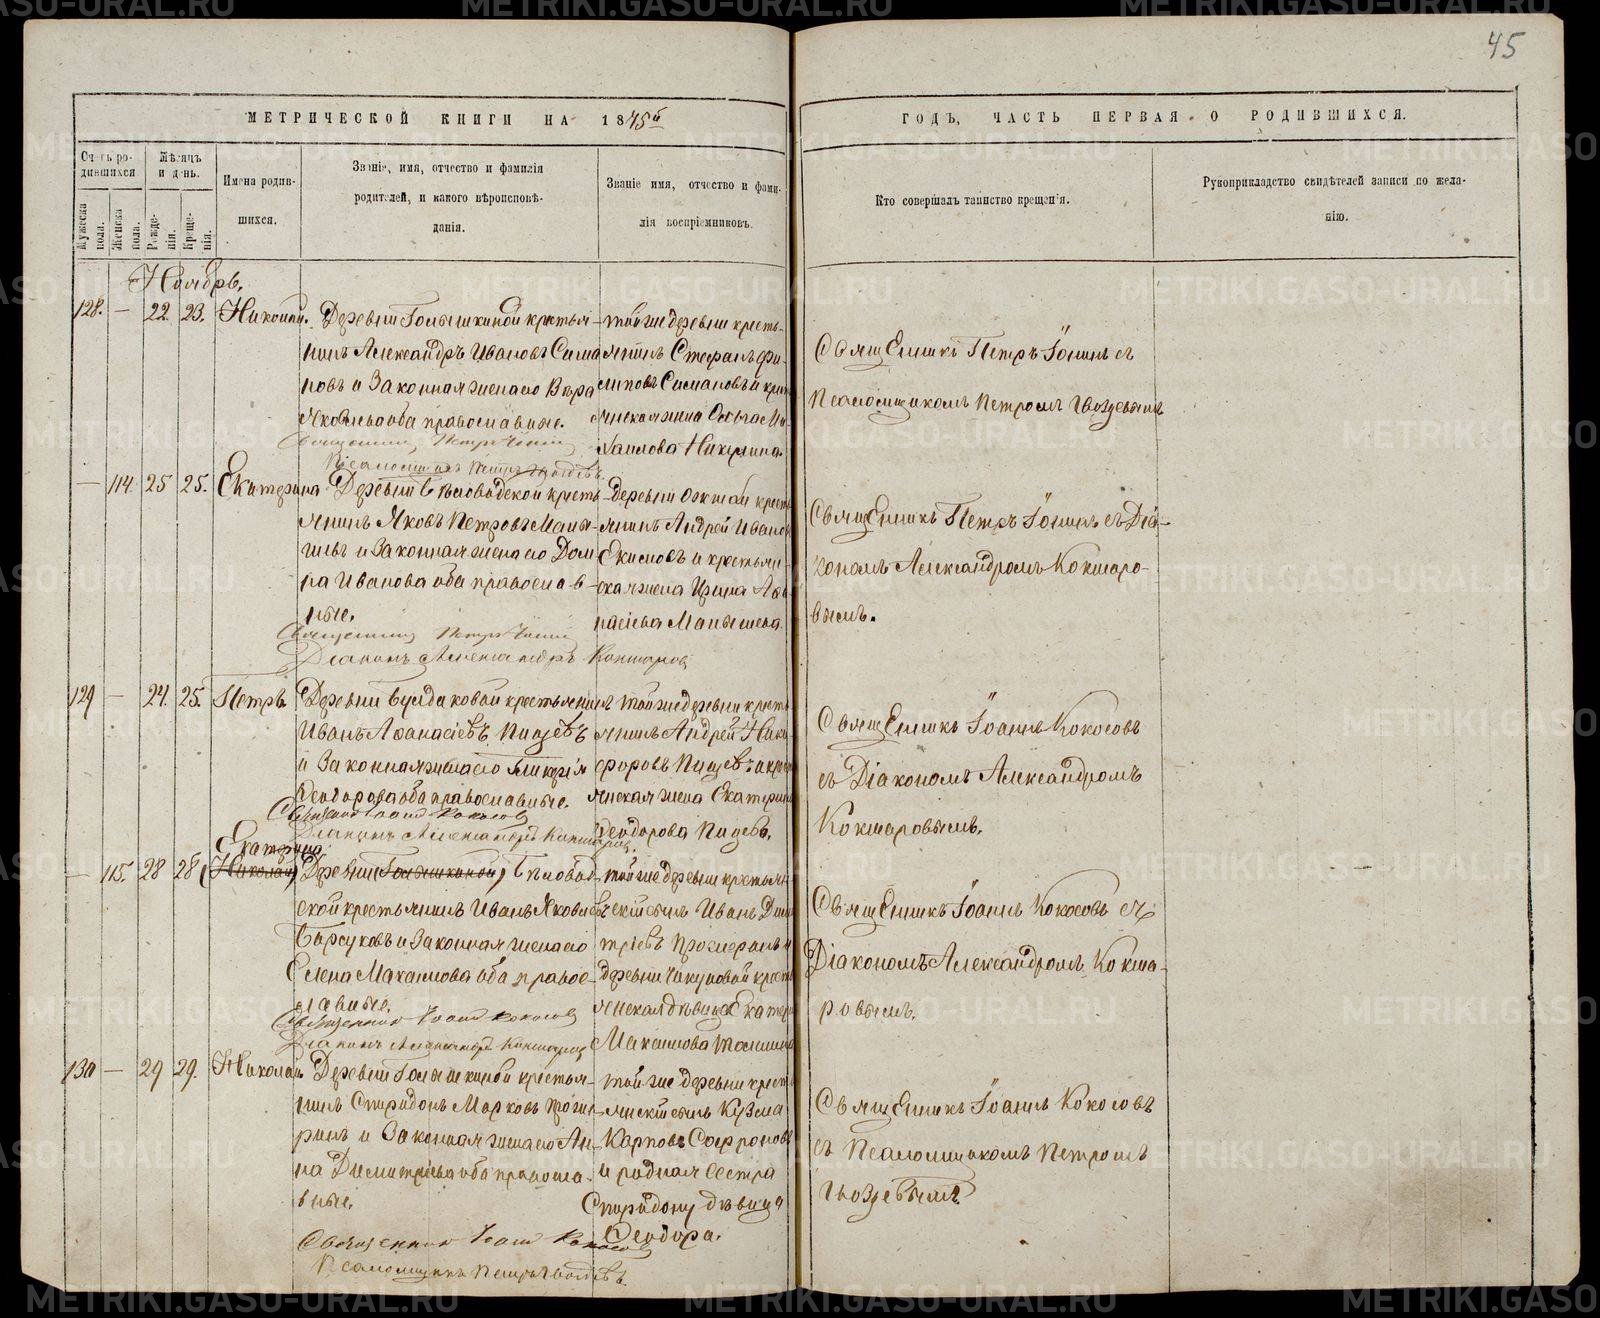 45
МЕТРИЧЕСКОЙ КНИГИ НА 1875й
ГОДЪ, ЧАСТЬ ПЕРВАЯ О РОДИВШИХСЯ.
Счетъ родившихся
Мужеска пола.
Женска пола.
Мѣсяцъ и день.
Рожденія.
Крещенія.
Имена родившихся.
Званіе, имя, отчество и фамилія
родителей, и какого вѣроисповѣ-
данія.
Званіе имя, отчество и фами-
лія воспріемниковъ.
Кто совершалъ таинство крещенія.
Рукоприкладство свидѣтелей записи по жела-
нію.
Ноябрь.
128. — 22. 23. Николай.
Деревни Голышкиной крестья-
нинъ Александръ Ивановъ Сима
новъ и Законная жена его Вѣра
Яковлева оба православные.
Священникъ Петръ
Псаломщикъ Петръ Гвоздевъ
той же деревни кресть-
янинъ Стефанъ Фи-
липовъ Симановъ и крест
янская жена Ольга Ми-
хаилова Никулина.
Священникъ Петръ Іонинъ съ
Псаломщикомъ Петромъ Гвоздевымъ
— 114. 25 25. Екатерина
Деревни кресть-
янинъ Яковъ Петровъ Малы-
гинъ и Законная жена его Дом
на Иванова оба правосла в-
ные.
Священникъ Петръ
Діаконъ Александръ Кокшаровъ
деревни крест
янинъ Андрей Иванов
Екимовъ и крестьян-
ская жена Ирина Афа
насіева Малышева.
Священникъ Петръ Іонинъ съ Діа-
кономъ Александромъ Кокшаро-
вымъ.
129 — 24. 25. Петръ
Деревни Булдаковой крестьянинъ
Иванъ Афанасіевъ
и Законная жена его
Феодорова оба православные.
Священникъ Іоаннъ Кокосов
Діаконъ Александръ Кокшаровъ.
той же деревни кресть
янинъ Андрей Ники
форовъ и крест
янская жена Екатерина
Феодорова
Священникъ Іоаннъ Кокосовъ
съ Діакономъ Александромъ
Кокшаровымъ.
Екатерина
— 115. 28 28 (Николай)
Деревни (Голышкиной)
ской крестьянинъ Иванъ Яковлевъ
Барсуковъ и Законная жена его
Елена Макаимова оба правос-
лавные.
Священникъ Іоаннъ Кокосов
Діаконъ Александръ Кокшаровъ
той же деревни крестьян
скій сынъ Иванъ Дими
тріевъ и
деревни Чикуновой крест
янская дѣвица Екатер
Макаимова
Священникъ Іоаннъ Кокосовъ съ
Діакономъ Александромъ Кокша-
ровымъ.
130 — 29 29. Николай
Деревни Голышкиной крестья-
нинъ Спиридонъ Марковъ
и Законная жена его Ан-
на Димитріева оба правосла-
вные.
Священникъ Іоанн Кокосов
Псаломщикъ Петръ Гвоздевъ
той же деревни крест
янскій сынъ Кузма
Карповъ Софроновъ
и родная сестра
Спиридону дѣвица
Феодора.
Священникъ Іоаннъ Кокосовъ
съ Псаломщикомъ Петромъ
Гвоздевымъ
METRIKI.GASO-URAL.RU